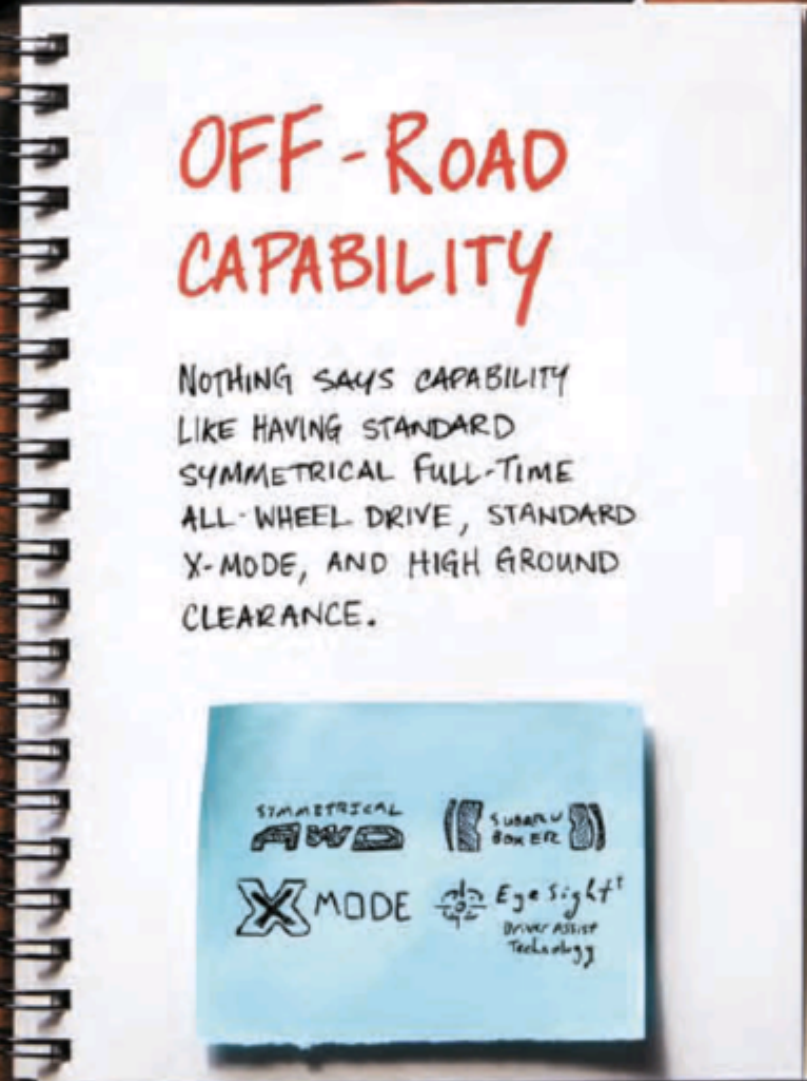 OFF-ROAD
CAPABILITY
NOTHING SAYS CAPABILITY
LIKE HAVING STANDARD
SYMMETRICAL FULL-TIME
ALL-WHEEL DRIVE, STANDARD
X-MODE, AND HIGH GROUND
CLEARANCE.
SYMMETRICAL
AWD
SUBARU
BOXER
X MODE
EyeSight†
Driver Assist
Technology